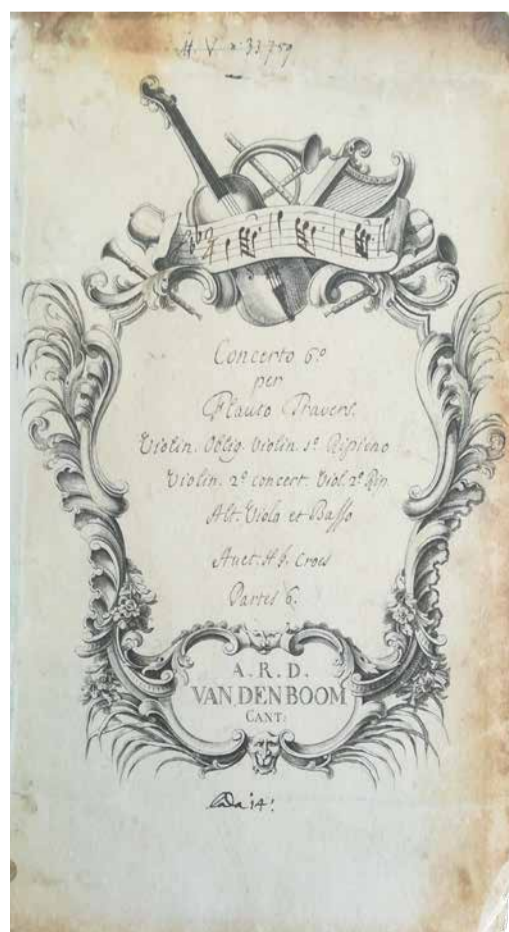 H. V n: 33759
Concerto 6.º
per
Flauto Travers.
Violin. Oblig. Violin. 1º Ripieno
Violin. 2º concert. Viol. 2º Rip.
Alt. Viola et Basso
Auct. H. J. Croes
Partes 6.
A. R. D.
VAN DEN BOOM
CANT:
14.